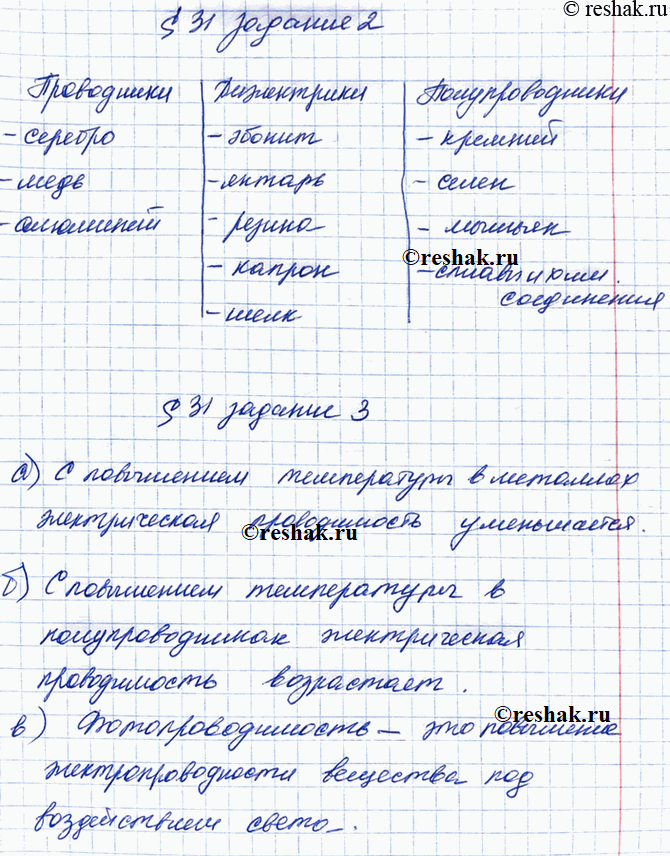 © reshak.ru
§ 31 задание 2
Проводники Диэлектрики Полупроводники
- серебро - эбонит - кремний
- медь - янтарь - селен
- алюминий - резина - мышьяк
©reshak.ru
- капрон - сплавы и хим.
соединения
- шелк
§ 31 задание 3
а) С повышением температуры в металлах
электрическая проводимость уменьшается.
©reshak.ru
б) С повышением температуры в
полупроводниках электрическая
проводимость возрастает.
©reshak.ru
в) Фотопроводимость – это повышение
электропроводности вещества под
воздействием света.
©reshak.ru